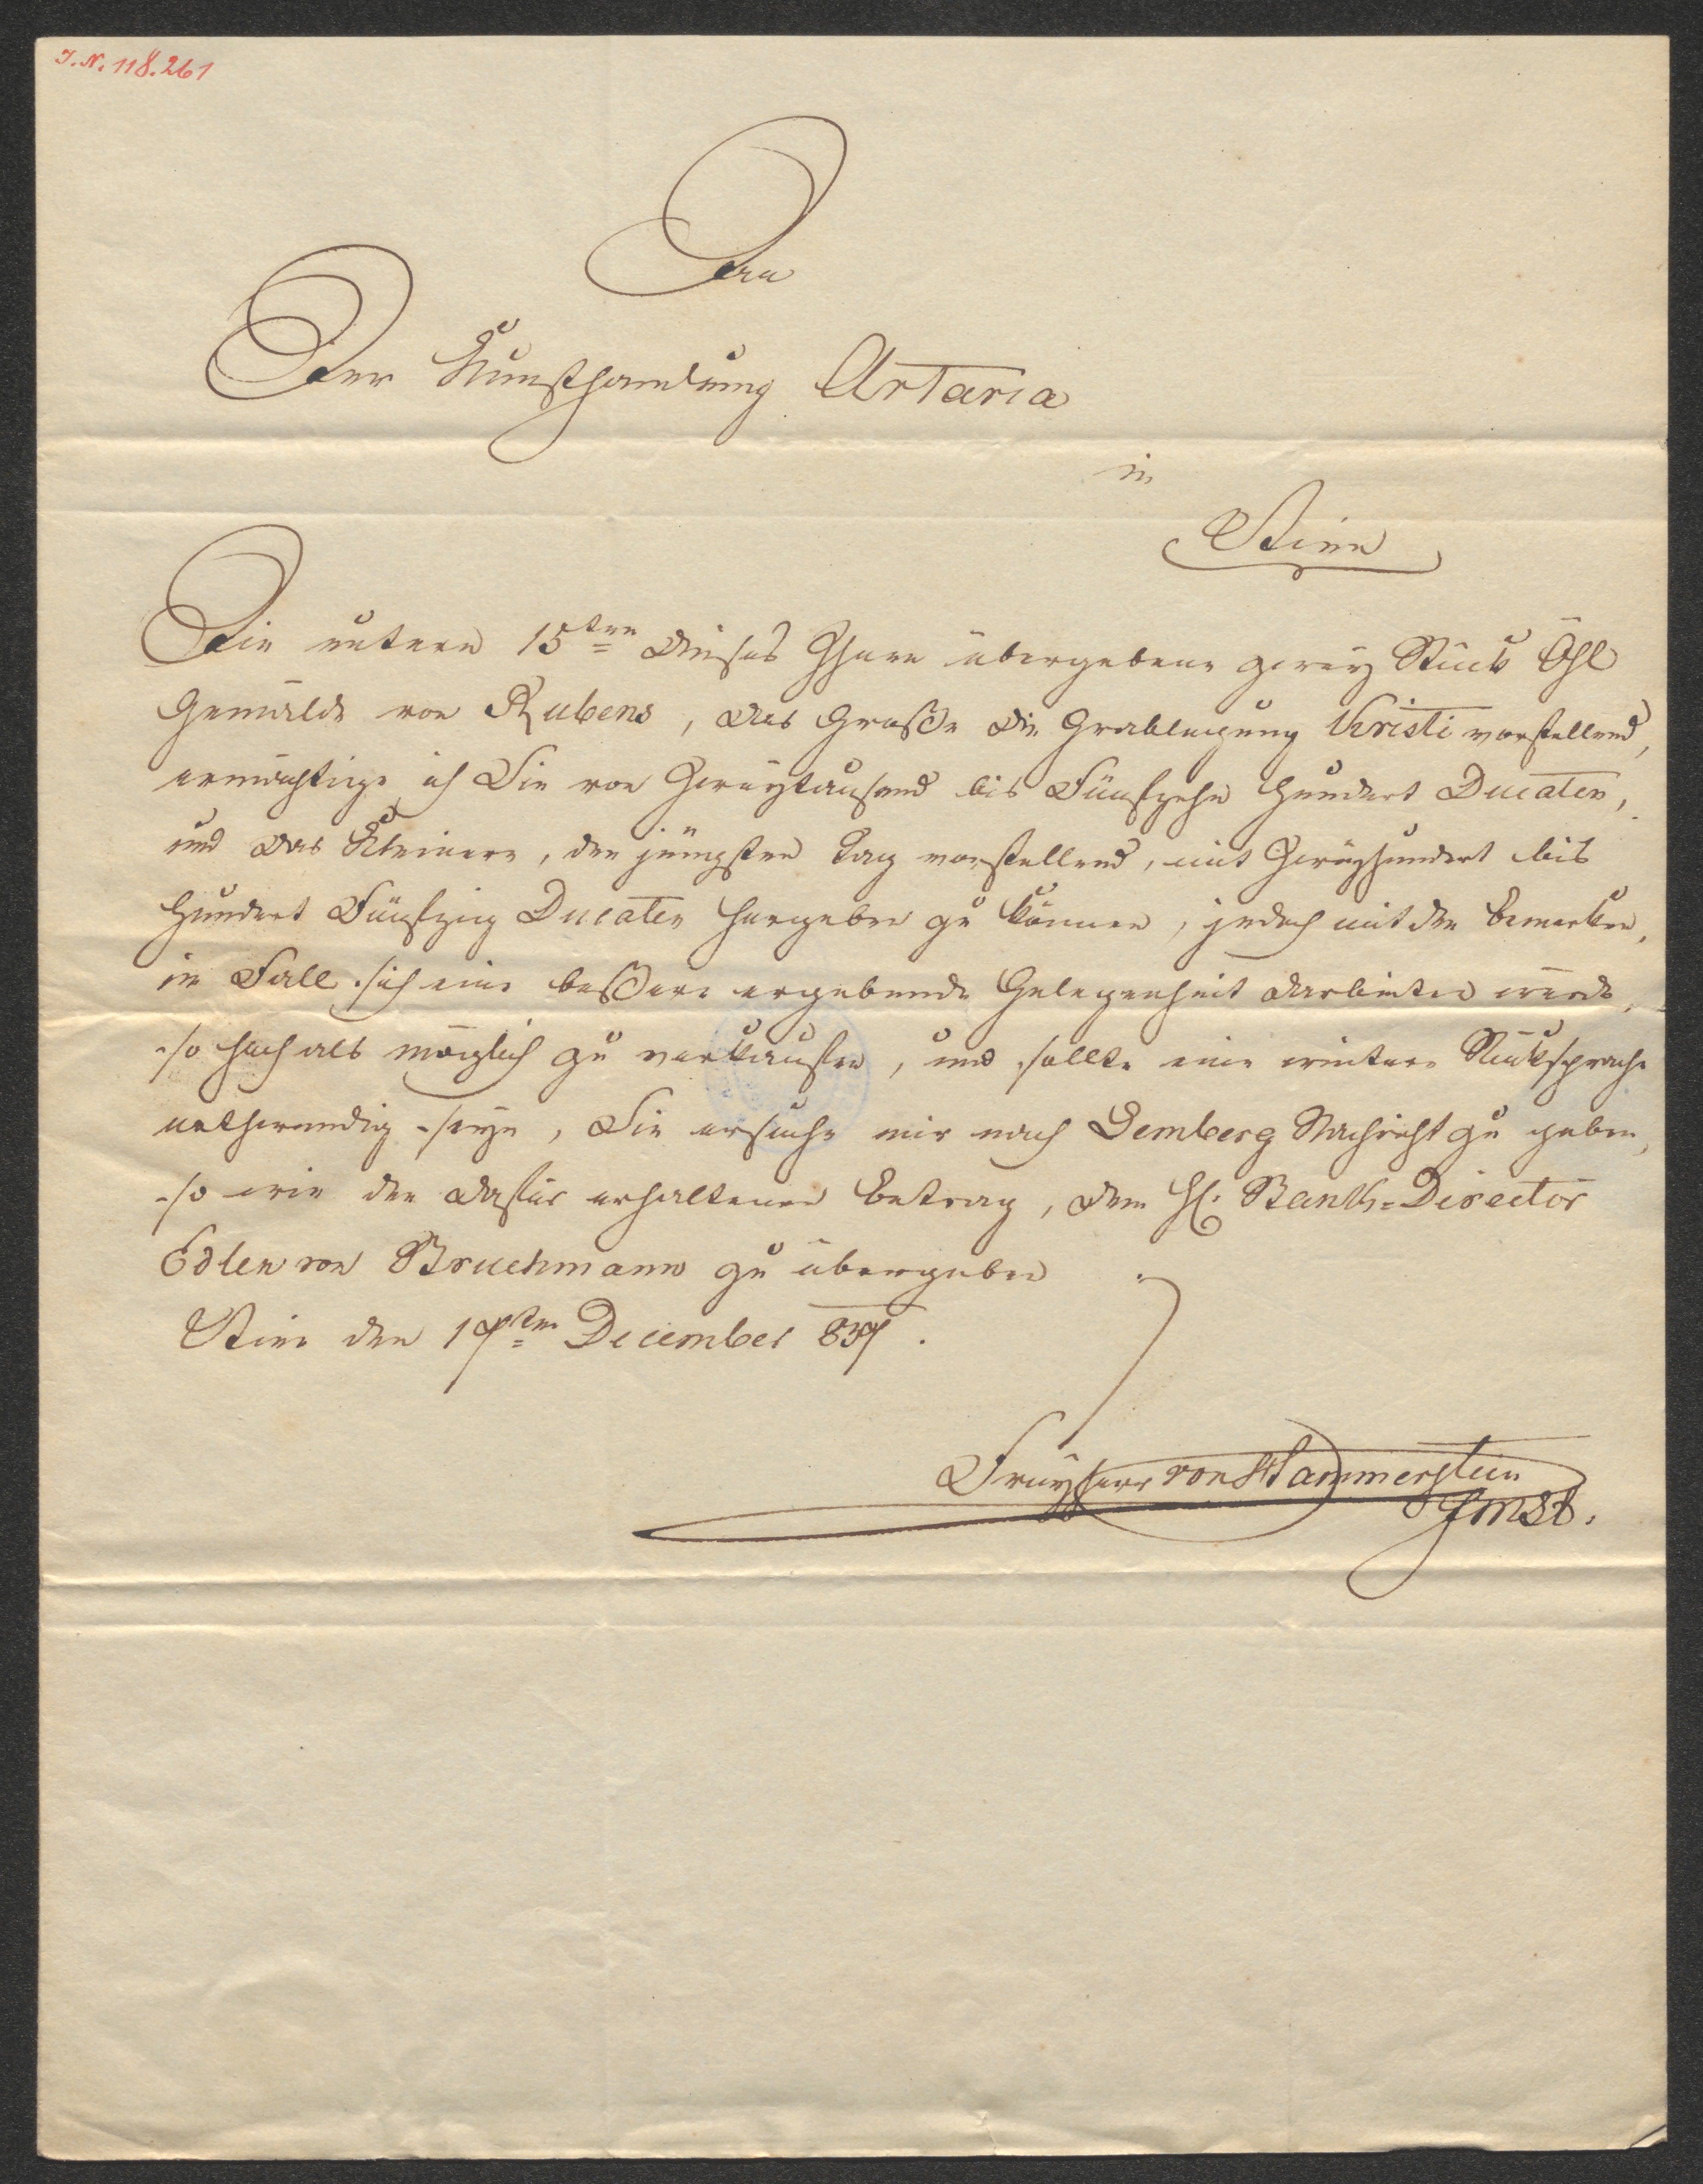 I. N. 118.261
An
Der Kunsthandlung Artaria
in
Wien
Die untern 15ten dieses Ihnen übergebene zweÿ Stück Öhl
Gemälde von Rubens, das Große die Grablegung Kristi vorstellend,
ermächtige ich Sie von Zweÿtausend bis Fünfzehn Hundert Ducaten,
und das Kleinere, den jüngsten Tag vorstellend, mit Zweÿhundert bis
Hundert Fünfzig Ducaten hergeben zu können, jedoch mit den Bemerken,
im Fall sich eine beßere ergebende Gelegenheit darbieten würde,
so hoch als möglich zu verkaufen, und sollte eine weitere Rücksprache
nothwendig seÿn, Sie ersuche mir nach Lemberg Nachricht zu geben,
so wie den dafür erhaltenen Betrag, dem H. Bank-Director
Edlen von Bruchmann zu übergeben.
Wien den 17ten December 837.
Freÿherr von Hammerstein